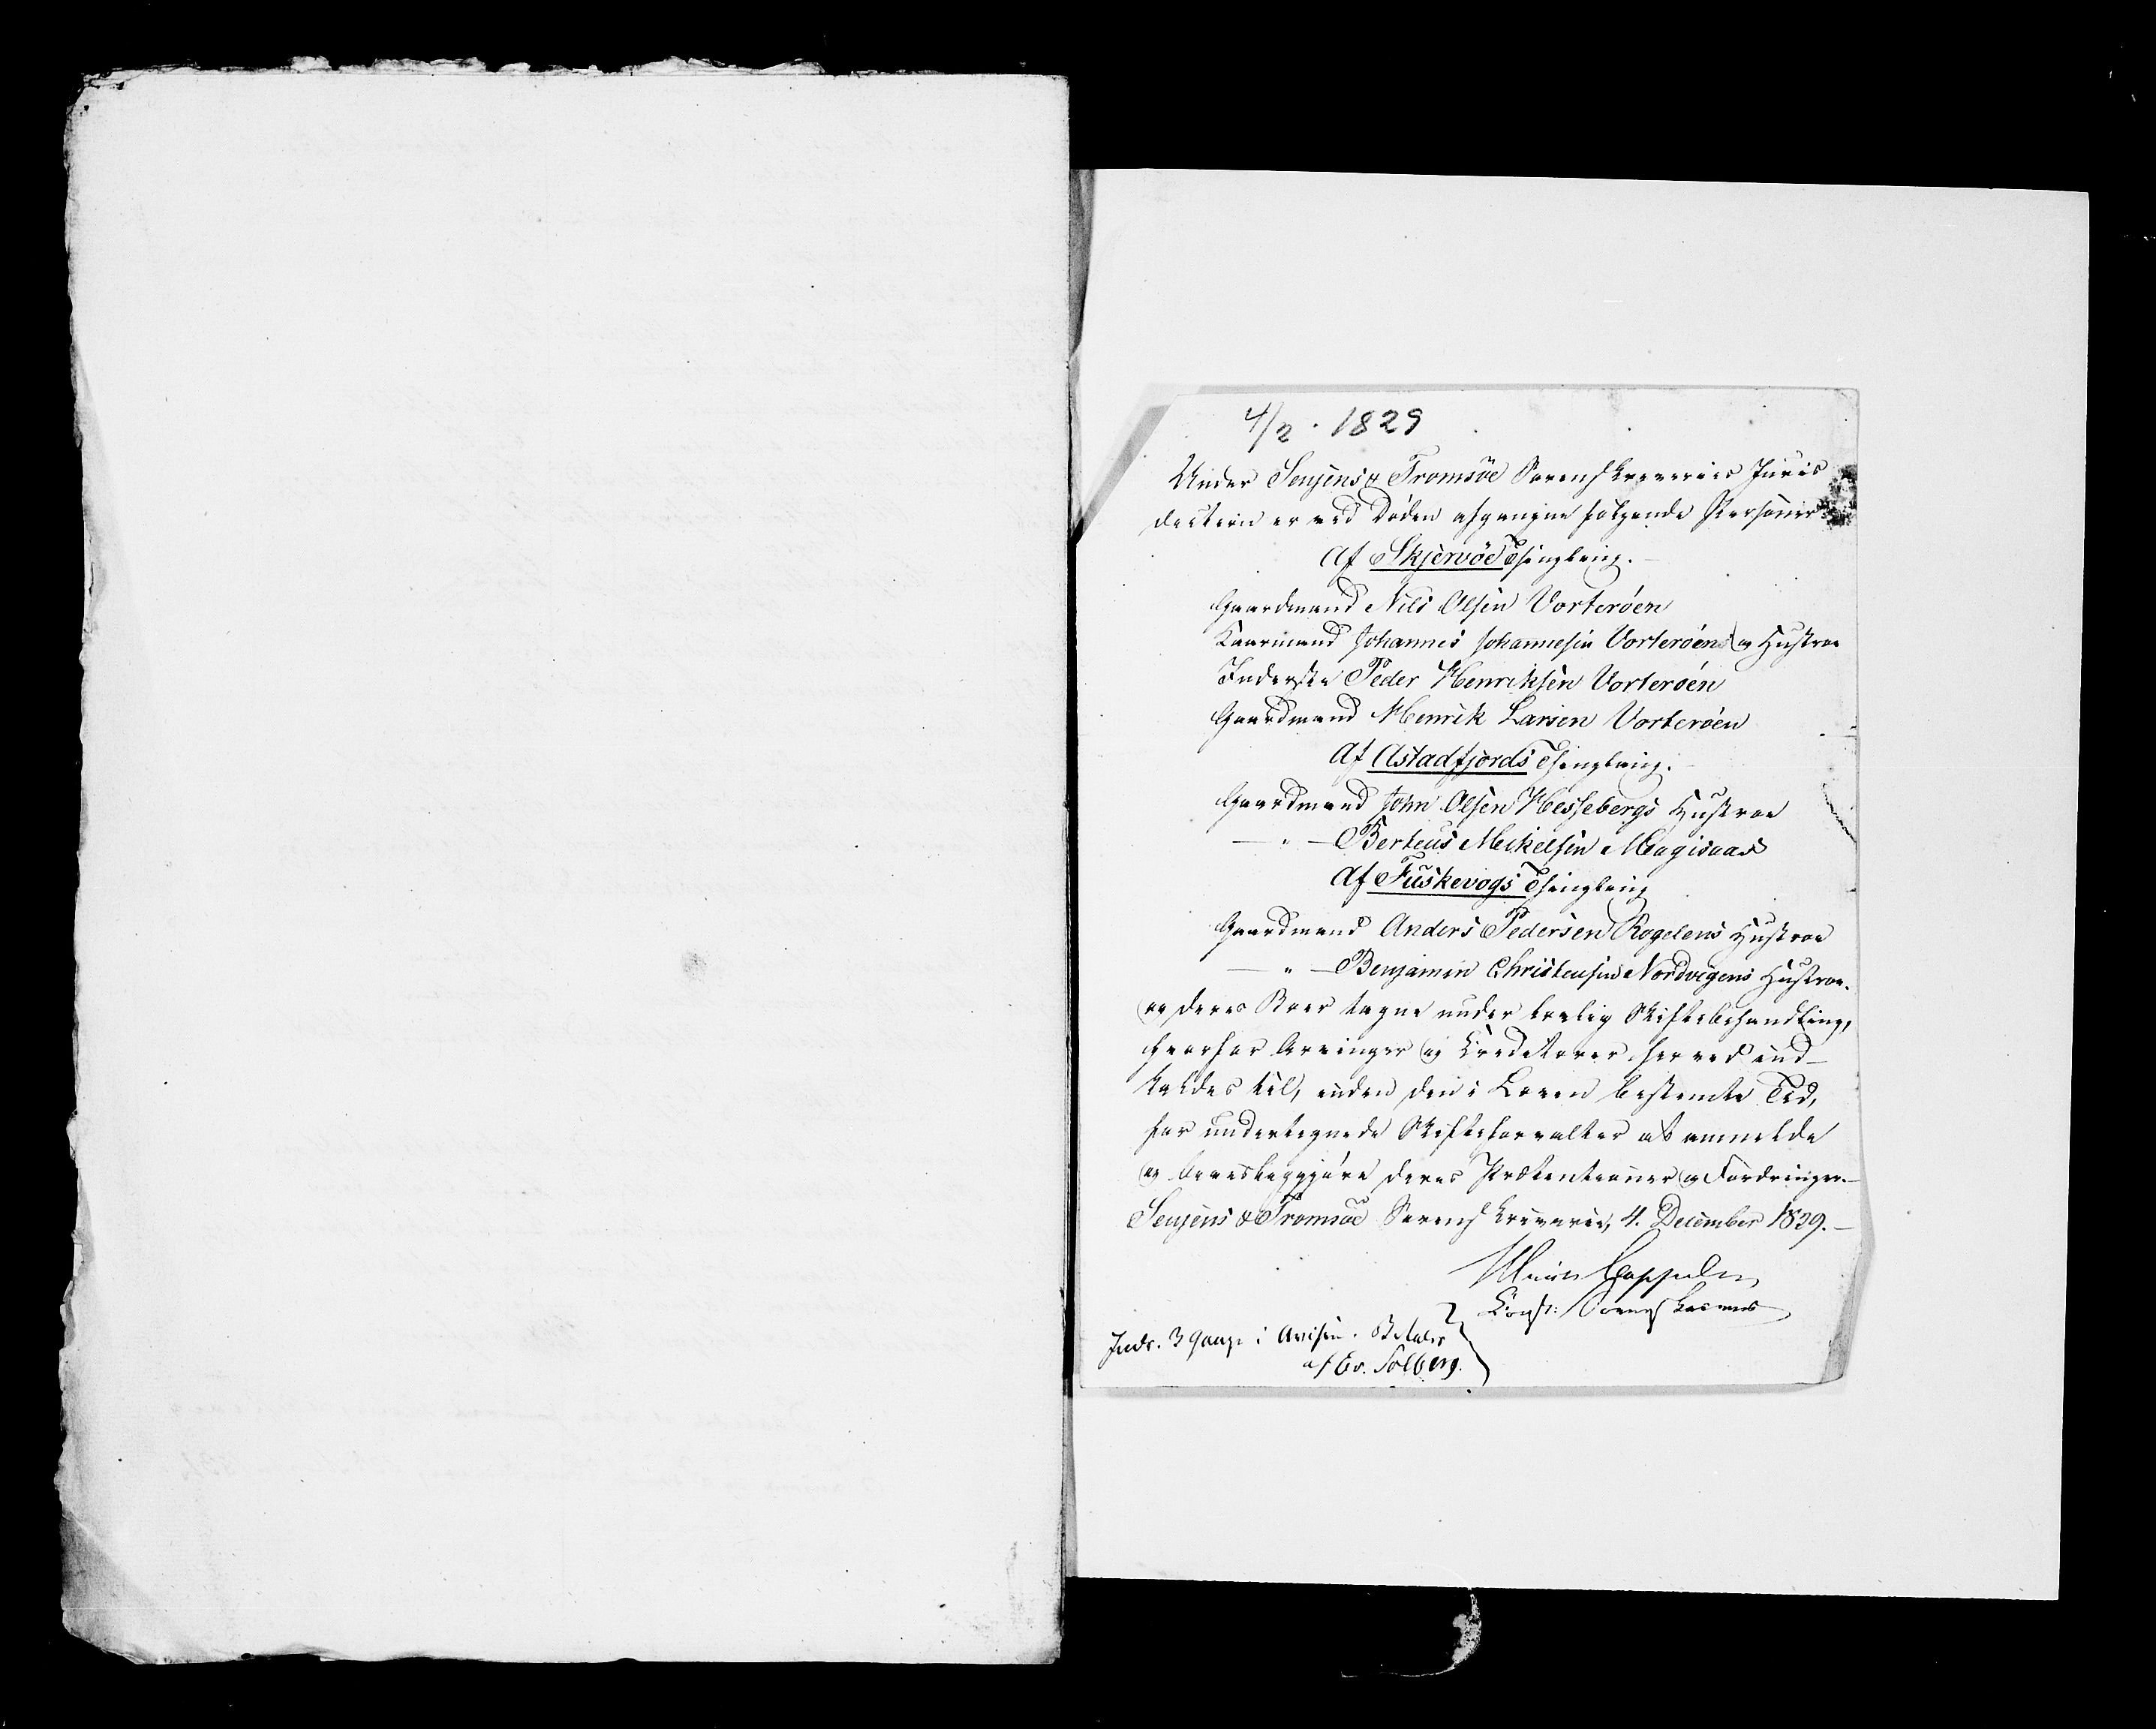 4/2 · 1829
Under Senjens & Tromsöe Sorenskreveries Juris
dection er ved Döden afgangne følgende Personer
Af Skjervöe Thinglaug.
Gaardmand Nils Olsen Vorteröen
Kaarmand Johannes Johannesen Vorteröens og Hustroe
Inderste Peder Henriksen Vorteröen
Gaardmand Henrik Larsen Vorteröen
Af Astadfjords Thinglaug.
Gaardmand John Olsen Hessebergs Hustroe
— " — Berteus Mekelsen
Af Fuskevogs Thinglaug
Gaardmand Anders Pedersen Rogelens Hustroe
— " — Benjamin Christensens Nordvigens Hustroe.
og deres Boer tagne under lovlig Skiftebehandling,
hvorfor Arvinger og Creditorer herved ind-
kaldes til, inden den i Loven bestemte Tid,
for undertegnede Skifteforvalter at anmelde
og beviisliggjöre deres Prætentioner og Fordringer.—
Senjens & Tromsöe Sorenskriverie, 4. December 1829.—
Cappelen
Const: Sorenskriver
Inds. 3 Gange i Avisen. Betales
af Ev. Solberg.